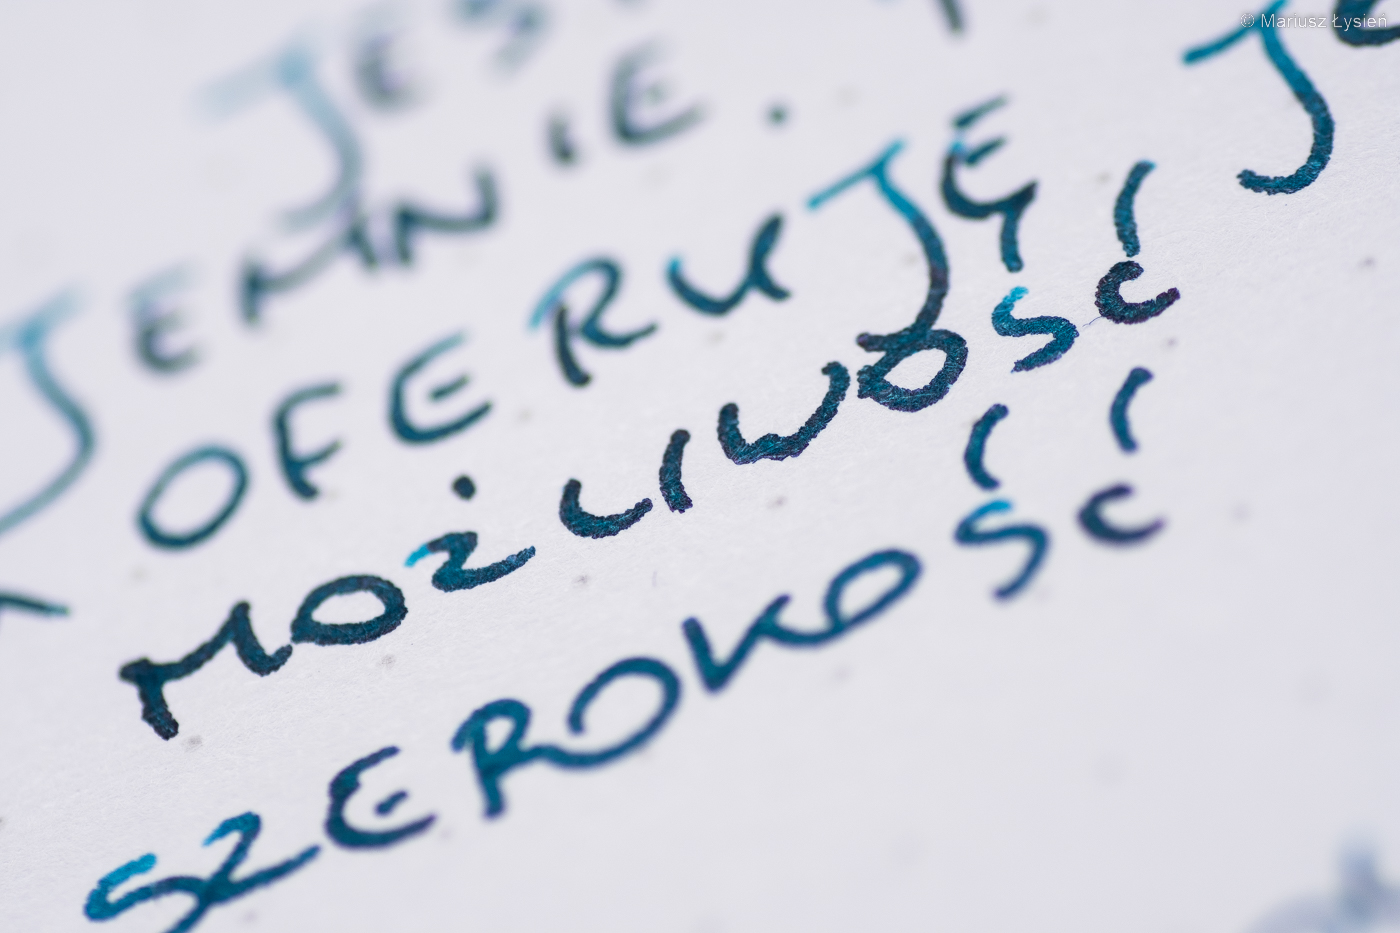 © Mariusz Łysień
JEMNIE.
OFERUJĘ
MOŻLIWOŚĆ
SZEROKOŚĆ